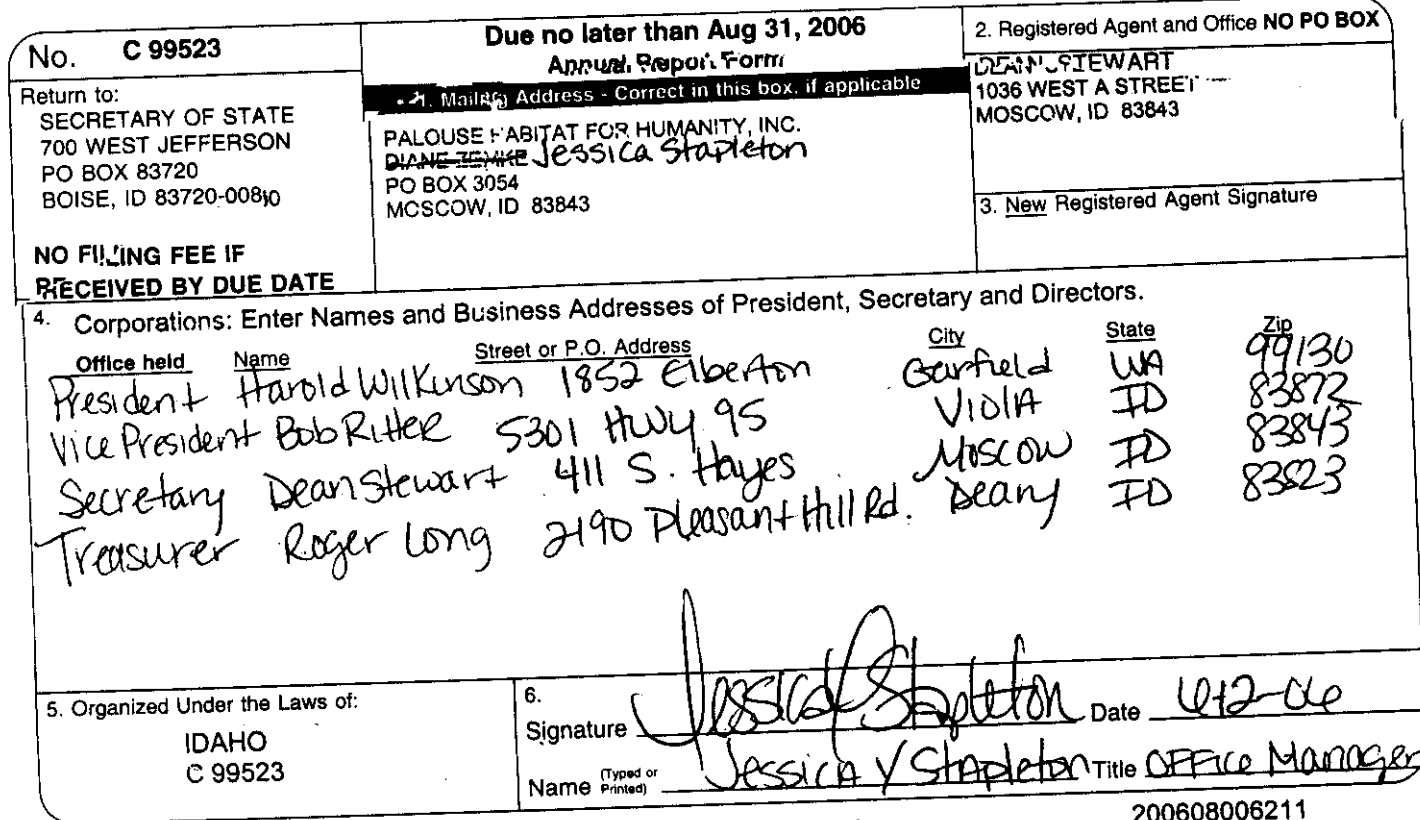 No. C 99523
Return to:
SECRETARY OF STATE
700 WEST JEFFERSON
PO BOX 83720
BOISE, ID 83720-0080
NO FILING FEE IF
RECEIVED BY DUE DATE
Due no later than Aug 31, 2006
Annual Report Form
1. Mailing Address - Correct in this box, if applicable
PALOUSE HABITAT FOR HUMANITY, INC.
DIANE ZEMKE Jessica Stapleton
PO BOX 3054
MOSCOW, ID 83843
2. Registered Agent and Office NO PO BOX
DEAN STEWART
1036 WEST A STREET
MOSCOW, ID 83843
3. New Registered Agent Signature
4. Corporations: Enter Names and Business Addresses of President, Secretary and Directors.
Office held Name Street or P.O. Address City State Zip
President Harold Wilkinson 1852 Elberton Garfield WA 99130
Vice President Bob Ritter 5301 HWY 95 Viola ID 83872
Secretary Dean Stewart 411 S. Hayes Moscow ID 83843
Treasurer Roger Long 2190 Pleasant Hill Rd. Deary ID 83823
5. Organized Under the Laws of:
IDAHO
C 99523
6.
Signature Jessica Stapleton Date
Name (Typed or Printed) Jessica Y Stapleton Title Office Manager
200608006211